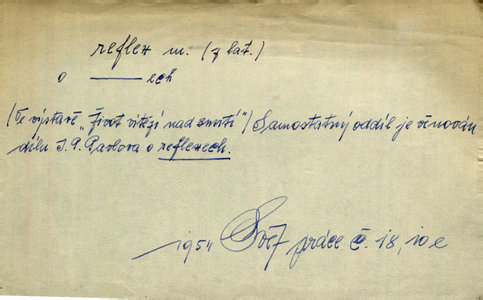 reflex m. (z lat.)
o ——— ech
/Ve výstavě „Život vítězí nad smrtí“/ Samostatný oddíl je věnován
dílu I. P. Pavlova o reflexech.
1951 Svět práce č. 18, 10 c